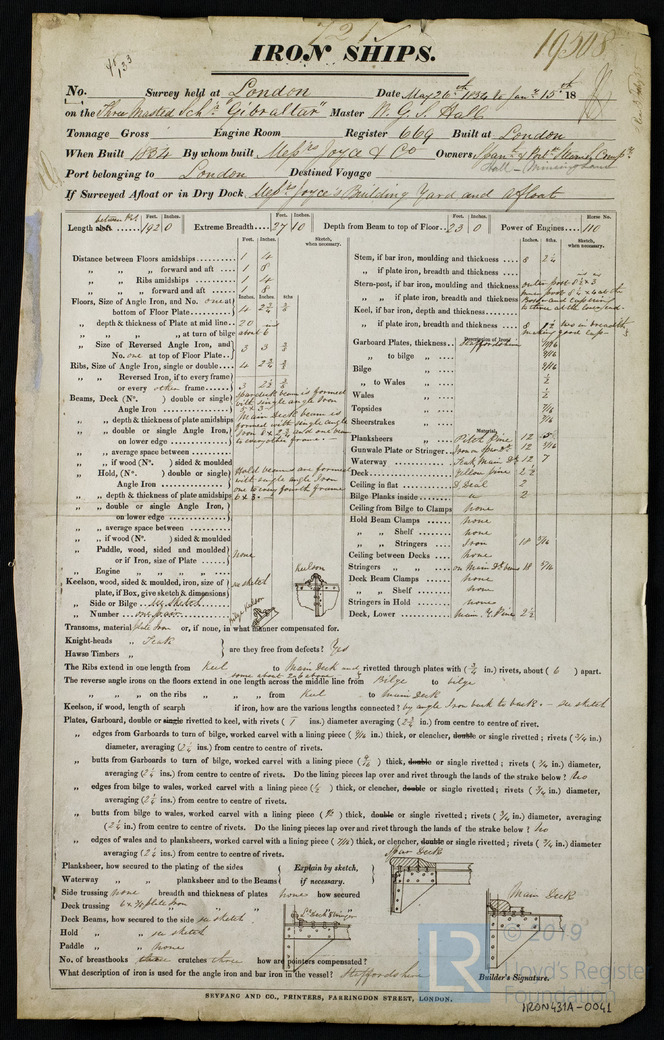 721
IRON SHIPS.
19508
No. Survey held at London Date May 26th 1854 to Jany 15th 18
on the Three Masted Schr "Gibraltar" Master N. G. S. Hall
Tonnage Gross Engine Room Register 669 Built at London
When Built 1854 By whom built Messrs Joyce & Co Owners
Port belonging to London Destined Voyage
If Surveyed Afloat or in Dry Dock Messrs Joyce's Building Yard and afloat
Length aloft 192 0 Extreme Breadth 27 10 Depth from Beam to top of Floor 23 0 Power of Engines 110
Feet. Inches. Feet. Inches. Feet. Inches. Horse No.
Feet. Inches. Sketch, when necessary.
Distance between Floors amidships 1 4
„ „ forward and aft 1 8
„ Ribs amidships 1 4
„ „ forward and aft 1 8
Inches. Inches. 8ths
Floors, Size of Angle Iron, and No. one at bottom of Floor Plate
„ depth & thickness of Plate at mid line 20
„ „ at turn of bilge about 6
„ Size of Reversed Angle Iron, and No. one at top of Floor Plate 3 3
Ribs, Size of Angle Iron, single or double
„ Reversed Iron, if to every frame or every other frame
Beams, Deck (No. ) double or single Angle Iron
Spar deck beam is formed with single angle Iron 5 x 3
„ „ depth & thickness of plate amidships
„ „ double or single Angle Iron on lower edge
Main Deck beam is formed with single angle Iron
„ „ average space between
„ „ if wood (No. ) sided & moulded
„ Hold, (No. ) double or single Angle Iron
Hold beams are formed with single angle Iron one to every fourth frame 6 x 3
„ „ depth & thickness of plate amidships
„ „ double or single Angle Iron, on lower edge
„ „ average space between
„ „ if wood (No. ) sided & moulded
„ Paddle, wood, sided and moulded or if Iron, size of Plate none
„ Engine „ „
Keelson, wood, sided & moulded, iron, size of plate, if Box, give sketch & dimensions see sketch
Keelson
„ Side or Bilge see sketch
„ Number one pair
Bilge Keelson
Inches. 8ths Sketch, when necessary.
Stem, if bar iron, moulding and thickness 8 2¼
„ if plate iron, breadth and thickness
Stern-post, if bar iron, moulding and thickness
„ if plate iron, breadth and thickness
Keel, if bar iron, depth and thickness
„ if plate iron, breadth and thickness
Description of Iron
Garboard Plates, thickness Staffordshire
„ to bilge „
Bilge „
„ to Wales „
Wales „ ½
Topsides „ 7/16
Sheerstrakes „
Material.
Planksheers „ Pitch Pine 12
Gunwale Plate or Stringer 12
Waterway „ Teak Main Dk 12 7
Deck Yellow Pine 2½
Ceiling in flat S. Deal 2
Bilge Planks inside 2
Ceiling from Bilge to Clamps none
Hold Beam Clamps none
„ „ Shelf none
„ „ Stringers Iron 18
Ceiling between Decks none
Stringers „ „ on Main Dk beams 18
Deck Beam Clamps none
„ „ Shelf none
Stringers in Hold none
Deck, Lower Main Y Pine 2½
Transoms, material plate Iron or, if none, in what manner compensated for.
Knight-heads „ Teak
Hawse Timbers „
are they free from defects? Yes
The Ribs extend in one length from Keel to Main Deck and rivetted through plates with (¾ in.) rivets, about (6) apart.
The reverse angle irons on the floors extend in one length across the middle line from Bilge to bilge
„ „ on the ribs „ „ from Keel to Main Deck
Keelson, if wood, length of scarph if iron, how are the various lengths connected? by angle Iron back to back. – see sketch
Plates, Garboard, double or single rivetted to keel, with rivets (1 ins.) diameter averaging (2¾ in.) from centre to centre of river.
„ edges from Garboards to turn of bilge, worked carvel with a lining piece ( in.) thick, or clencher, double or single rivetted; rivets (¾ in.)
diameter, averaging (2¼ ins.) from centre to centre of rivets.
„ butts from Garboards to turn of bilge, worked carvel with a lining piece ( ) thick, double or single rivetted; rivets (¾ in.) diameter,
averaging (2¼ ins.) from centre to centre of rivets. Do the lining pieces lap over and rivet through the lands of the strake below? No
„ edges from bilge to wales, worked carvel with a lining piece ( ) thick, or clencher, double or single rivetted; rivets (¾ in.) diameter,
averaging (2¼ ins.) from centre to centre of rivets.
„ butts from bilge to wales, worked carvel with a lining piece ( ) thick, double or single rivetted; rivets (¾ in.) diameter, averaging
(2¼ in.) from centre to centre of rivets. Do the lining pieces lap over and rivet through the lands of the strake below? No
„ edges of wales and to planksheers, worked carvel with a lining piece ( ) thick, or clencher, double or single rivetted; rivets (¾ in.) diameter
averaging (2¼ ins.) from centre to centre of rivets.
Spar Deck
Planksheer, how secured to the plating of the sides
Waterway „ „ planksheer and to the Beams
Explain by sketch, if necessary.
Side trussing none breadth and thickness of plates none how secured
Main Deck
Deck trussing 6 x ¾ plate Iron „ „
Deck Beams, how secured to the side see sketch
Hold „ „ see sketch
Paddle „ „ none
No. of breasthooks three crutches three how are pointers compensated?
What description of iron is used for the angle iron and bar iron in the vessel? Staffordshire
Builder's Signature.
SEYFANG AND CO., PRINTERS, FARRINGDON STREET, LONDON.
LR
© 2019
Lloyd's Register
Foundation
IRON431A-0041